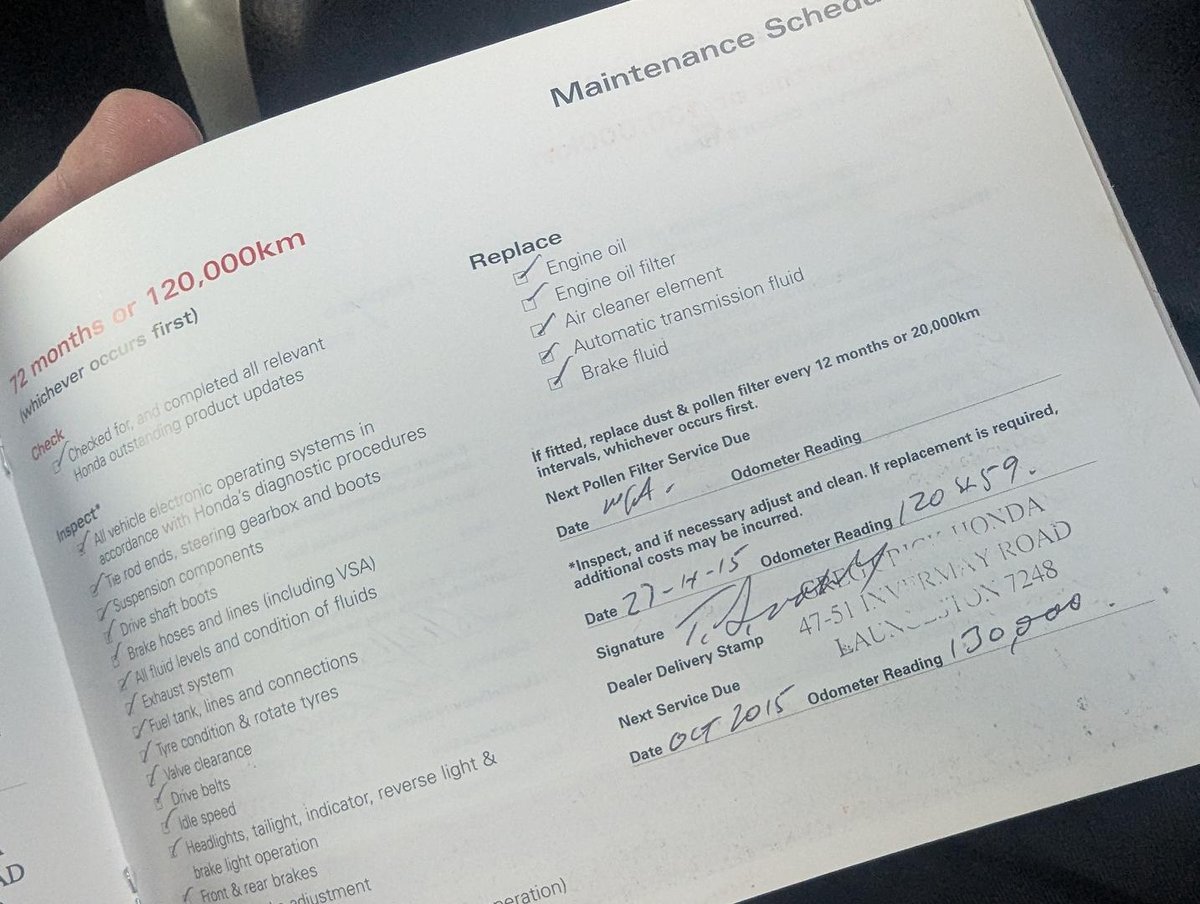 Maintenance Schedu
72 months or 120,000km
(whichever occurs first)
Check
Checked for, and completed all relevant
Honda outstanding product updates
Inspect*
All vehicle electronic operating systems in
accordance with Honda's diagnostic procedures
Tie rod ends, steering gearbox and boots
Suspension components
Drive shaft boots
Brake hoses and lines (including VSA)
All fluid levels and condition of fluids
Exhaust system
Fuel tank, lines and connections
Tyre condition & rotate tyres
Valve clearance
Drive belts
Idle speed
Headlights, tailight, indicator, reverse light &
brake light operation
Front & rear brakes
adjustment
peration)
Replace
Engine oil
Engine oil filter
Air cleaner element
Automatic transmission fluid
Brake fluid
If fitted, replace dust & pollen filter every 12 months or 20,000km
intervals, whichever occurs first.
Next Pollen Filter Service Due
Date Odometer Reading
*Inspect, and if necessary adjust and clean. If replacement is required,
additional costs may be incurred.
Date 27-4-15 Odometer Reading 120 459.
Signature
Dealer Delivery Stamp
HONDA
47-51 INVERMAY ROAD
LAUNCESTON 7248
Next Service Due
Date OCT 2015 Odometer Reading 130,000.
AD